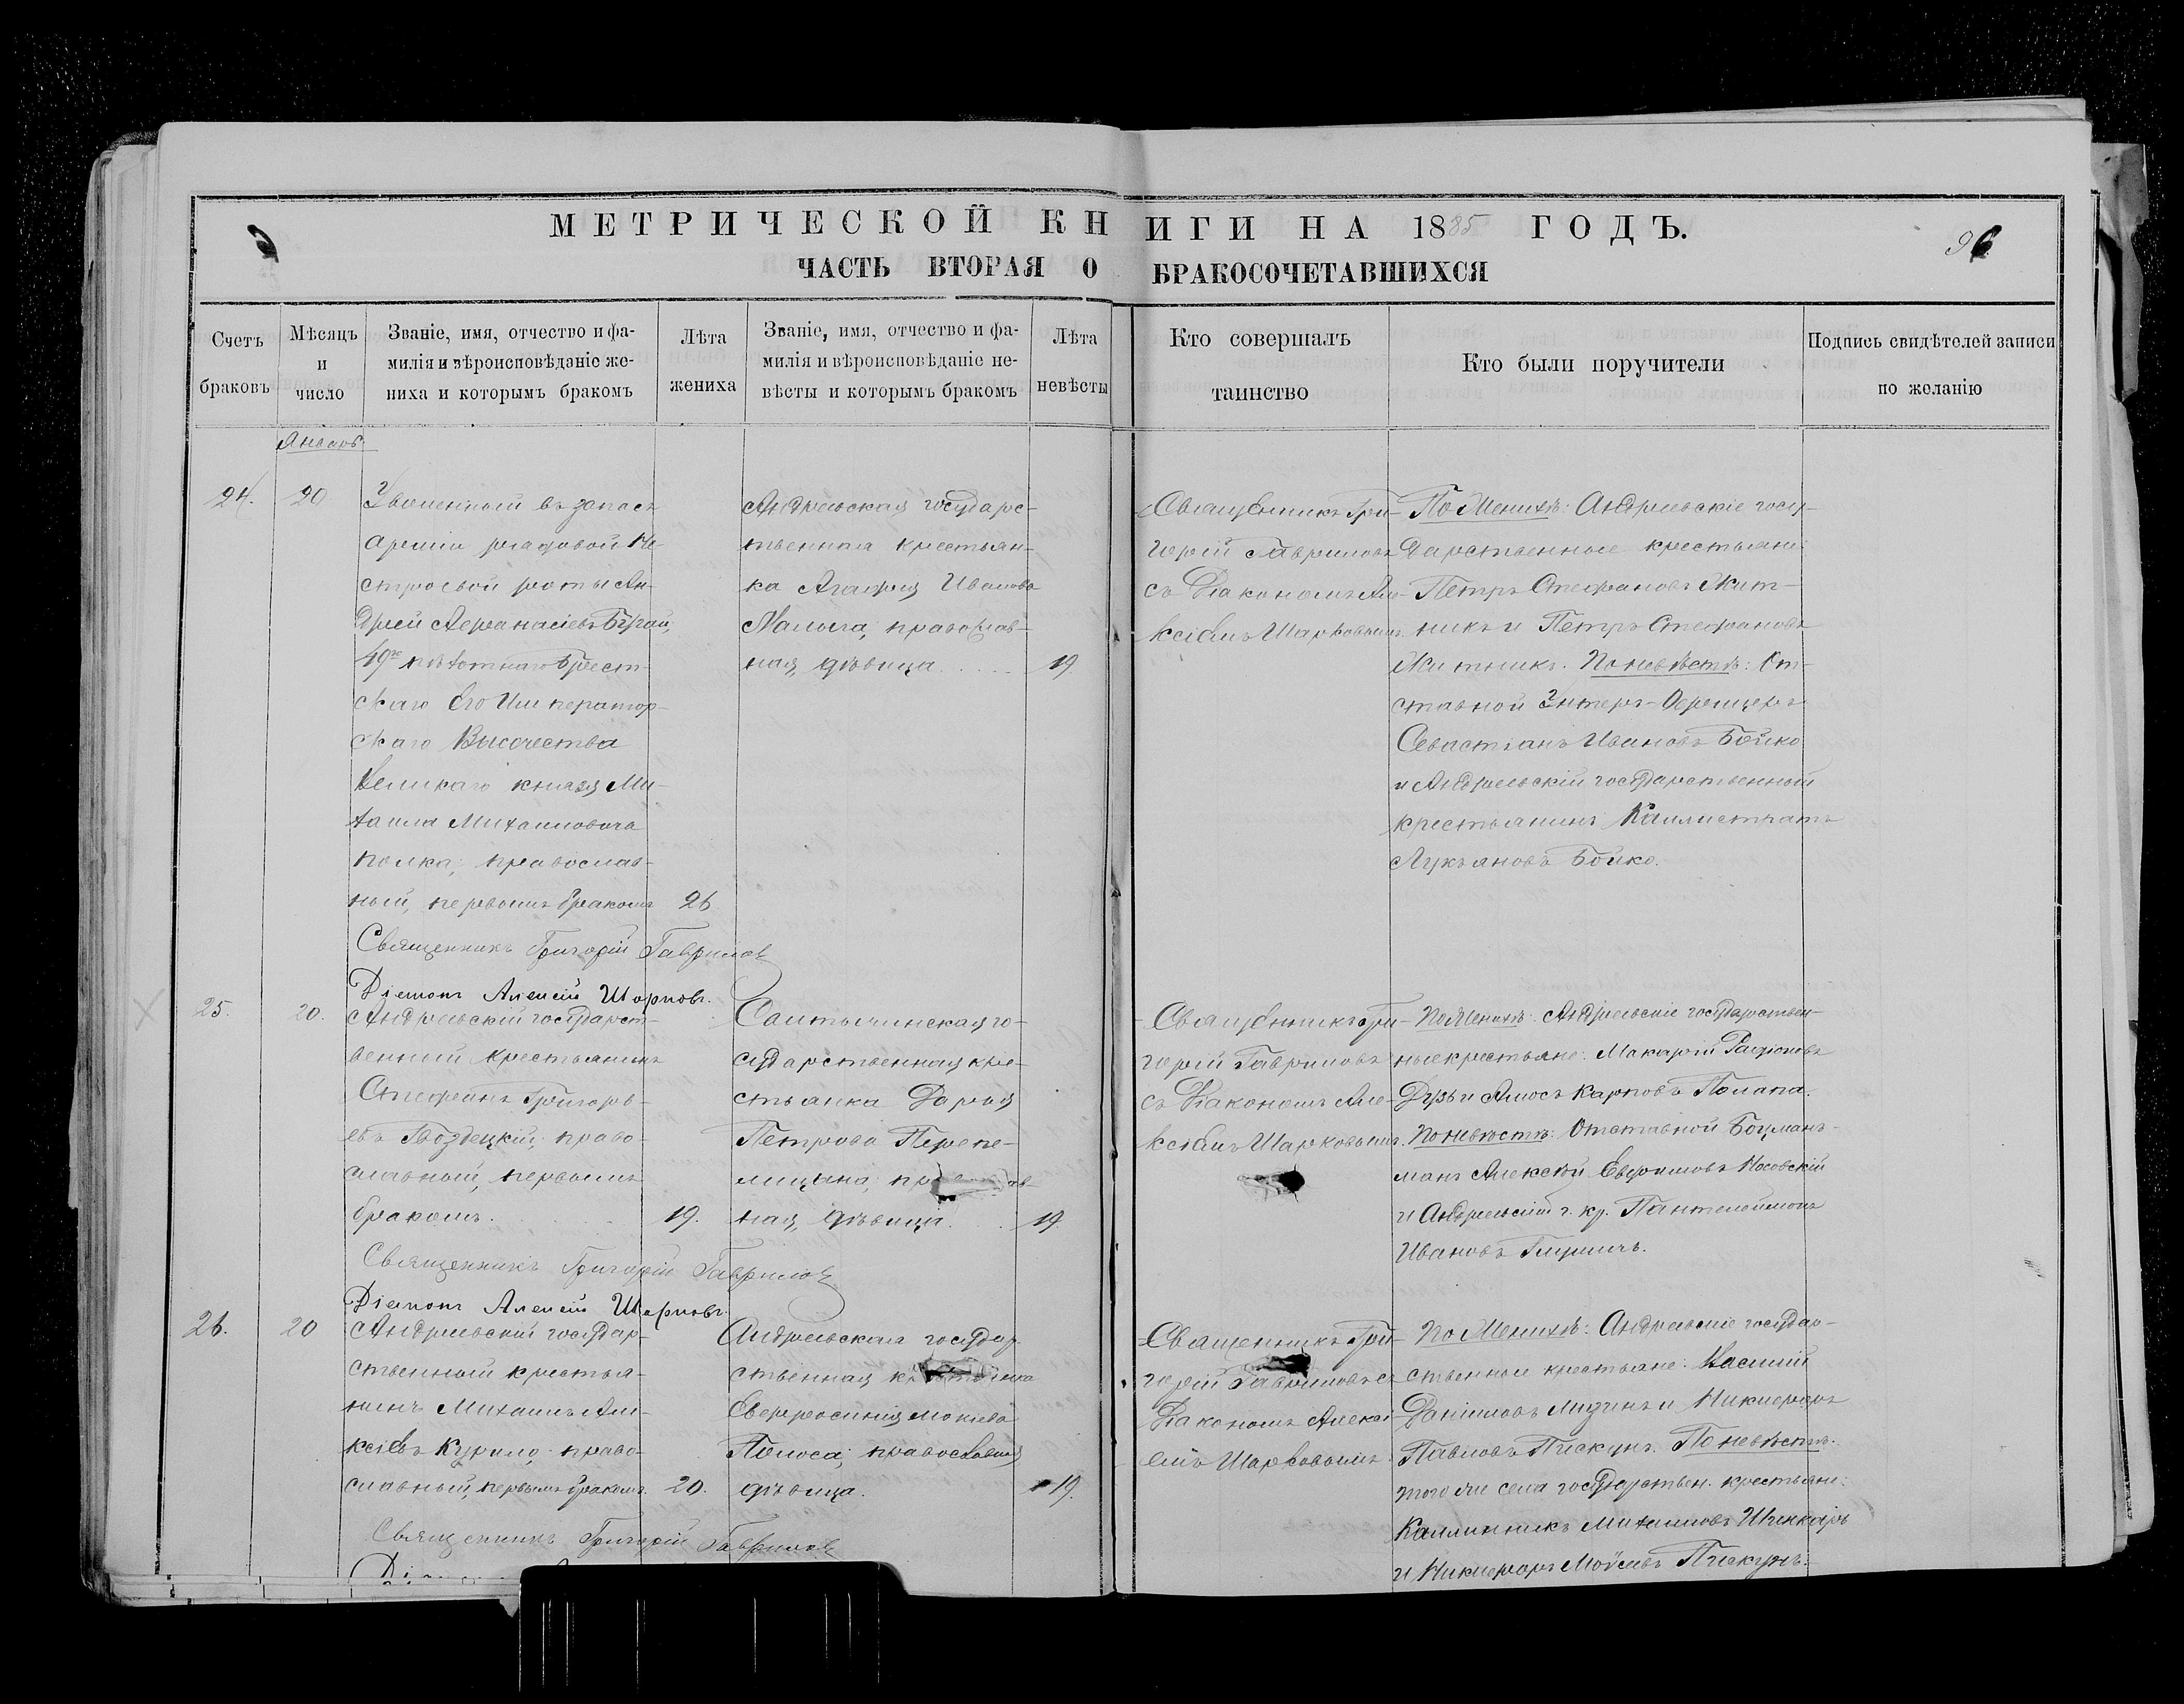 МЕТРИЧЕСКОЙ КНИГИ НА 1885 ГОДЪ.
96
ЧАСТЬ ВТОРАЯ О БРАКОСОЧЕТАВШИХСЯ
Счетъ
браковъ
Мѣсяцъ
и
число
Званіе, имя, отчество и фа-
милія и вѣроисповѣданіе же-
ниха и которымъ бракомъ
Лѣта
жениха
Званіе, имя, отчество и фа-
милія и вѣроисповѣданіе не-
вѣсты и которымъ бракомъ
Лѣта
невѣсты
Кто совершалъ
таинство
Кто были поручители
Подпись свидѣтелей записи
по желанію
Январь
24.
20
Уволенный въ запасъ
арміи рядовой Не-
строевой роты Ан-
дрей Аѳанасіевъ
49го пѣхотнаго Брест-
скаго Его Император-
скаго Высочества
Великаго князя Ми-
хаила Михаиловича
полка, православ-
ный, первымъ бракомъ
26
Андреевская государс-
твенная крестьян-
ка Агафія Иванова
православ-
ная, дѣвица
19.
Священникъ Гри-
горій Гавриловъ
съ Діакономъ Але-
ксіемъ Шарковымъ.
По Женихѣ: Андреевскіе госу-
дарственные крестьяне:
Петръ Стефановъ Жит-
никъ и Петръ Стефановъ
Житникъ. По невѣстѣ: От-
ставной Унтеръ-Офицеръ
Севастіанъ Ивановъ Бойко
и Андреевскій государственный
крестьянинъ Каллистратъ
Лукьяновъ Бойко.
Священникъ Григорій Гавриловъ
Діаконъ Алексій Шарковъ.
25.
20.
Андреевскій государст-
венный крестьянинъ
Стефанъ Григорь-
евъ Гвоздецкій, право-
славный, первымъ
бракомъ.
19.
го-
сударственная кре-
стьянка Дарія
Петрова Перепе-
лицына,
ная, дѣвица.
19.
Священникъ Гри-
горій Гавриловъ
съ Діакономъ Але-
ксіемъ Шарковымъ.
По Женихѣ: Андреевскіе государствен-
ные крестьяне: Макарій Родіоновъ
и Амосъ Карповъ
По невѣстѣ: Отставной Боцманъ-
манъ Алексѣй Евфимовъ Носовскій
и Андреевскій г. кр. Пантелеймонъ
Ивановъ
Священникъ Григорій Гавриловъ
Діаконъ Алексій Шарковъ.
26.
20
Андреевскій государ-
ственный крестья-
нинъ Михаилъ Але-
ксіевъ Курило, право-
славный, первымъ бракомъ.
20.
Андреевская государ-
ственная крестьянка
Евфросинія Мокіева
православная
дѣвица.
19.
Священникъ Гри-
горій Гавриловъ съ
Діакономъ Алексі-
емъ Шарковымъ.
По Женихѣ: Андреевскіе государ-
ственные крестьяне: Василій
Даніиловъ и Никифоръ
Павловъ Пискунъ. По невѣстѣ:
того же села государствен. крестьяне:
Каллиникъ Михаиловъ
и Никифоръ Моѵсеевъ Пискунъ.
Священникъ Григорій Гавриловъ